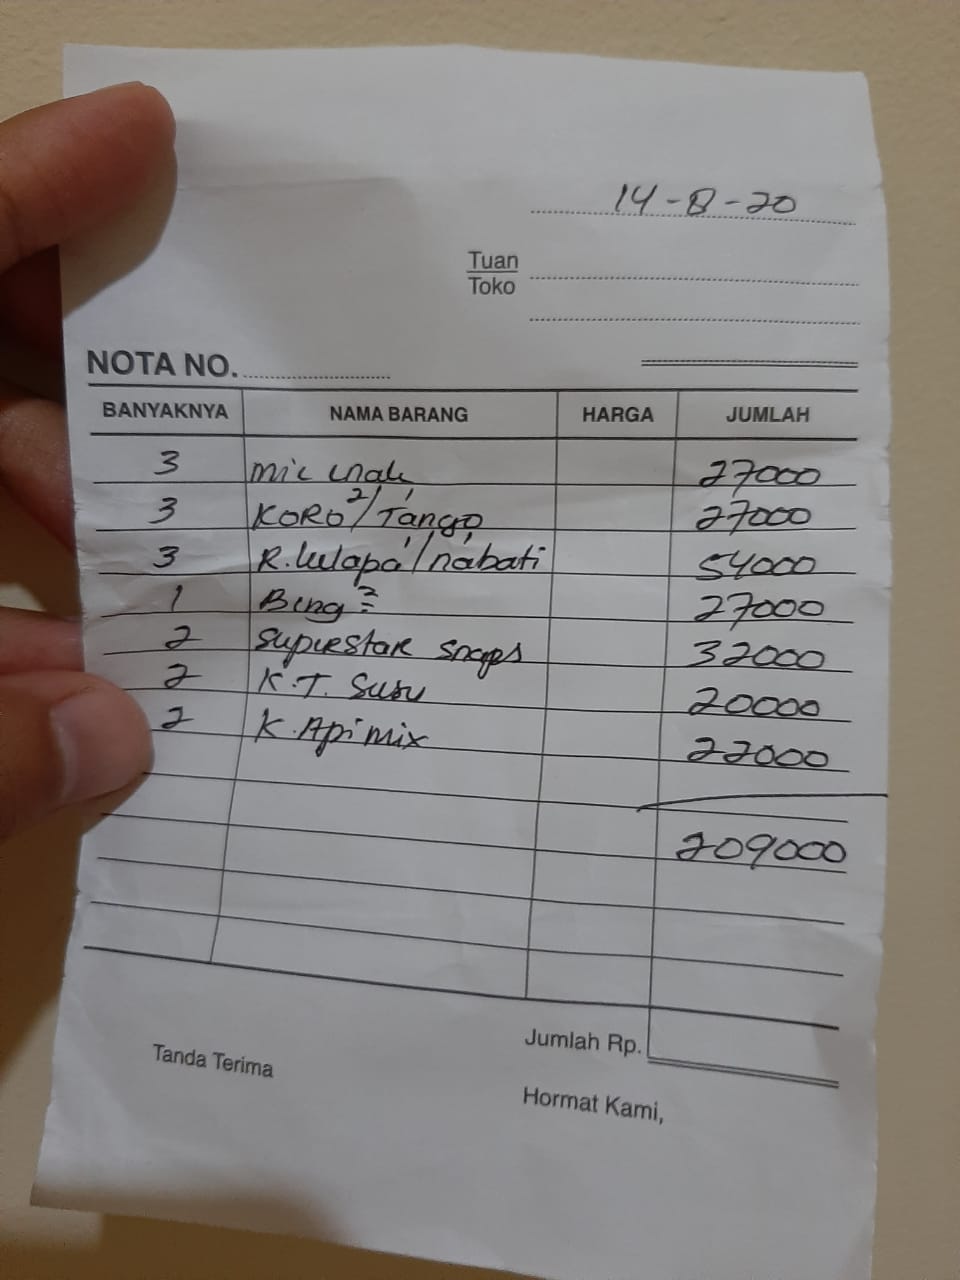 14-8-20
Tuan
Toko
NOTA NO.
BANYAKNYA NAMA BARANG HARGA JUMLAH
3 mie enak 27000
3 KORO2/Tango 27000
3 R.kelapa/nabati 54000
1 Beng2 27000
2 Superstar snaps 32000
2 K.T. Susu 20000
2 K.Api mix 22000
209000
Jumlah Rp.
Tanda Terima
Hormat Kami,